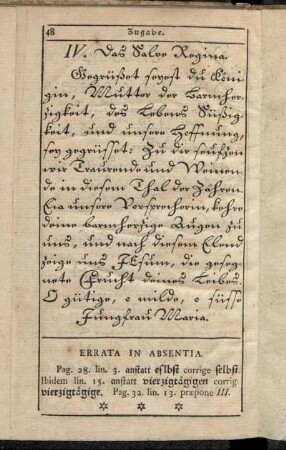 48 Zugabe.
IV. Das Salve Regina.
Gegrüßet seyest du Köni-
gin, Mutter der Barmher-
zigkeit, des Lebens Süßig-
keit, und unsere Hoffnung,
sey gegrüsset: Zu dir seufzen
wir Traurende und Weinen-
de in diesem Thal der Zähren.
Eia unsere Vorsprecherin, kehre
deine barmherzige Augen zu
uns, und nach diesem Elend
zeige uns JEsum, die geseg-
nete Frucht deines Leibes.
O gütige, o milde, o süsse
Jungfrau Maria.
ERRATA IN ABSENTIA.
Pag. 28. lin. 3. anstatt eslbst corrige selbst
Ibidem lin. 15. anstatt vierzigtägigen corrig
vierzigtägige. Pag. 32. lin. 13. præpone III.